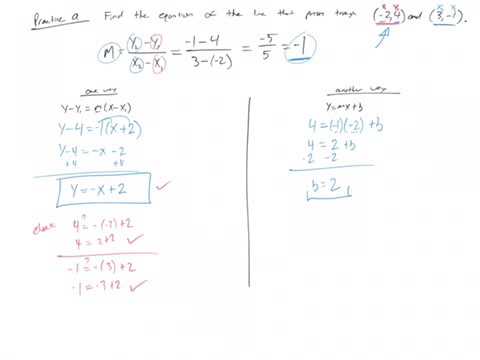 Practice a Find the equation of the line that passes through (-2,4) and (3,-1).
x y x y
M = Y₂-Y₁ / X₂-X₁ = -1-4 / 3-(-2) = -5 / 5 = -1
one way
Y-Y₁=m(X-X₁)
Y-4=-1(X+2)
Y-4=-X-2
+4 +4
Y=-X+2 ✓
check
4≟-(-2)+2
4=2+2 ✓
-1≟-(3)+2
-1=-3+2 ✓
another way
Y=mX+b
4=(-1)(-2)+b
4=2+b
-2 -2
b=2